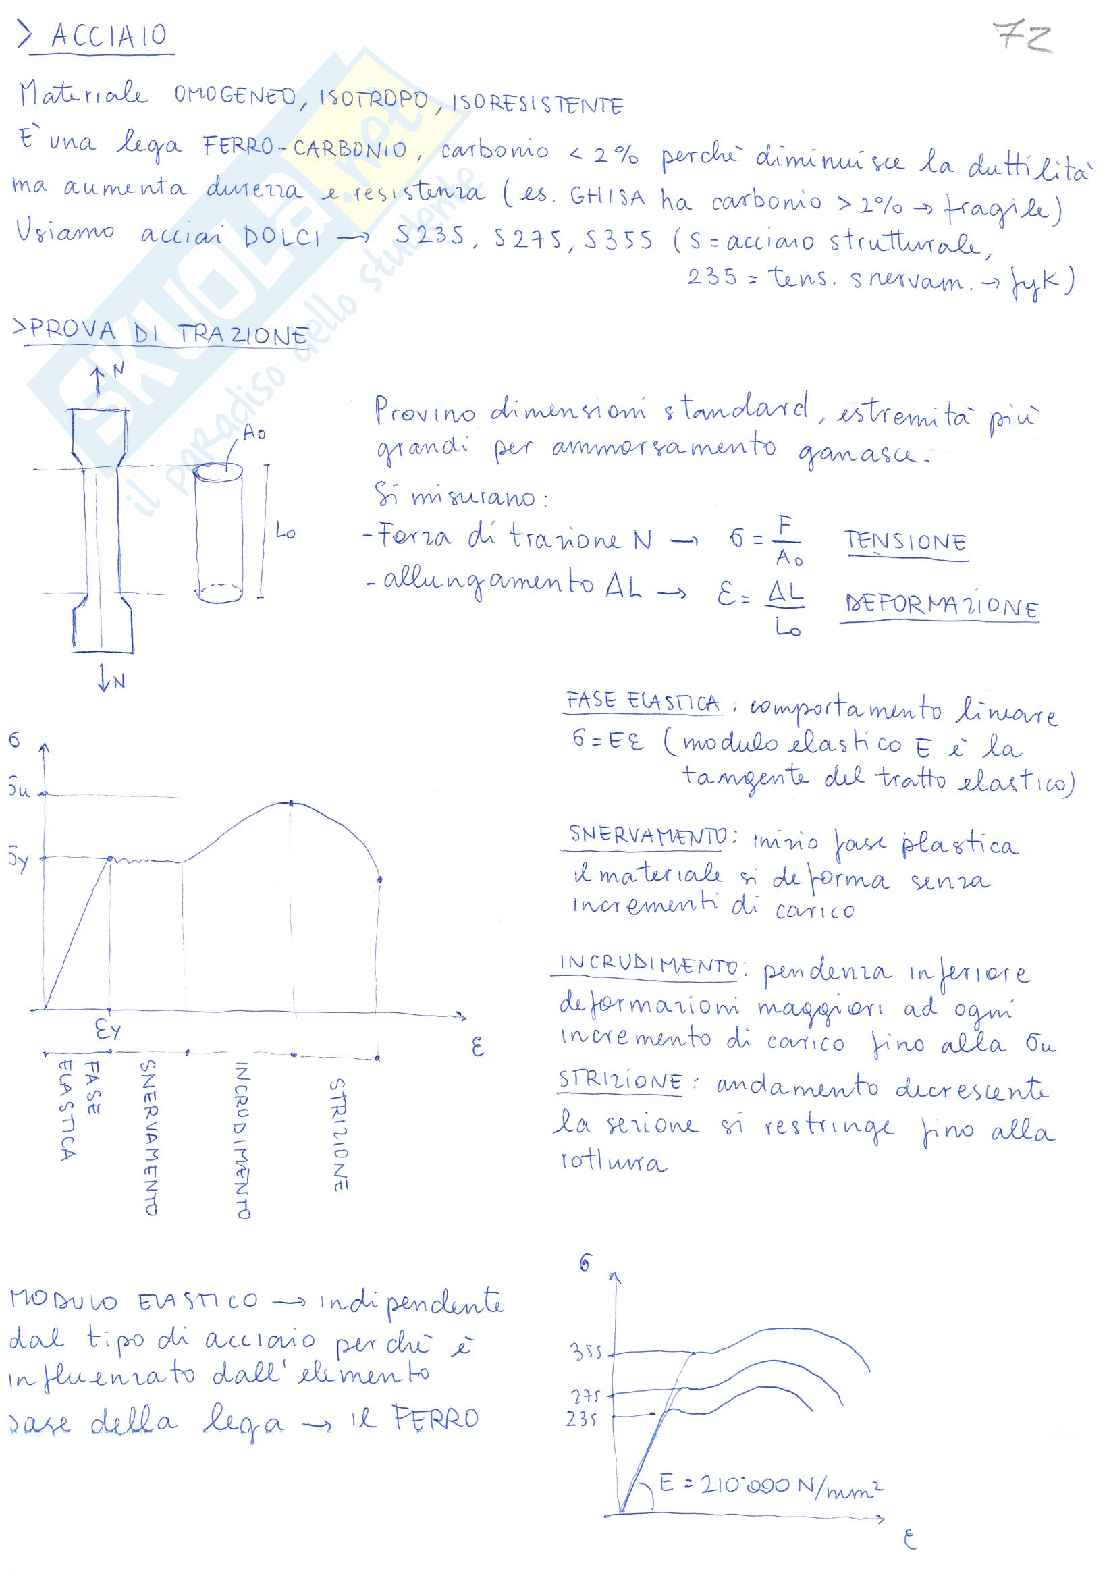 > ACCIAIO
72
Materiale OMOGENEO, ISOTROPO, ISORESISTENTE
E' una lega FERRO-CARBONIO, carbonio < 2% perchè diminuisce la duttilità
ma aumenta durezza e resistenza (es. GHISA ha carbonio > 2% → fragile)
Usiamo acciai DOLCI → S235, S275, S355 (S = acciaio strutturale,
235 = tens. snervam. → fyk)
SKUOLA.net
il paradiso dello studente
> PROVA DI TRAZIONE
N
A0
L0
N
Provino dimensioni standard, estremità più
grandi per ammorsamento ganasce.
Si misurano:
- Forza di trazione N → σ = F/A0 TENSIONE
- allungamento ΔL → ε = ΔL/L0 DEFORMAZIONE
σ
σu
σy
εy
ε
FASE ELASTICA
SNERVAMENTO
INCRUDIMENTO
STRIZIONE
FASE ELASTICA: comportamento lineare
σ = Eε (modulo elastico E è la
tangente del tratto elastico)
SNERVAMENTO: inizio fase plastica
il materiale si deforma senza
incrementi di carico
INCRUDIMENTO: pendenza inferiore
deformazioni maggiori ad ogni
incremento di carico fino alla σu
STRIZIONE: andamento decrescente
la sezione si restringe fino alla
rottura
MODULO ELASTICO → indipendente
dal tipo di acciaio perchè è
influenzato dall'elemento
base della lega → il FERRO
σ
355
275
235
E = 210'000 N/mm²
ε